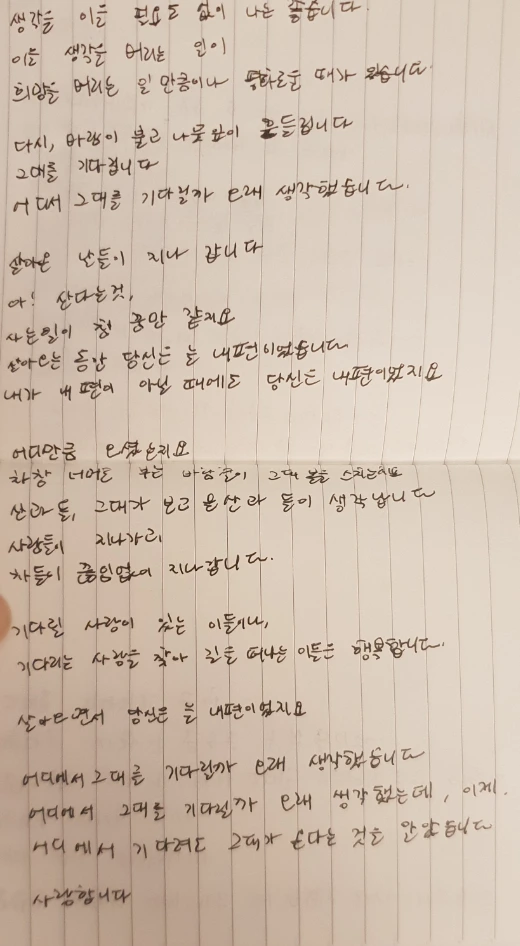 생각을 이을 필요도 없이 나는 좋습니다.
이을 생각을 버리는 일이
희망을 버리는 일 만큼이나 평화로울 때가 있습니다.
다시, 바람이 불고 나뭇잎이 흔들립니다
그대를 기다립니다
어디서 그대를 기다릴까 오래 생각했습니다.
살아온 날들이 지나 갑니다
아! 산다는것,
사는일이 참 꿈만 같지요
살아오는 동안 당신은 늘 내편이었습니다
내가 내 편이 아닐 때에도 당신은 내편이었지요
어디만큼 오셨는지요
차창 너머로 부는 바람결이 그대 볼을 스치는지요
산과 들, 그대가 보고 올 산과 들이 생각납니다
사람들이 지나가고
차들이 끊임없이 지나갑니다.
기다릴 사랑이 있는 이들이나,
기다리는 사람을 찾아 길을 떠나는 이들은 행복합니다.
살아오면서 당신은 늘 내편이었지요
어디에서 그대를 기다릴까 오래 생각했습니다
어디에서 그대를 기다릴까 오래 생각했는데, 이제.
어디에서 기다려도 그대가 온다는 것을 알았습니다
사랑합니다